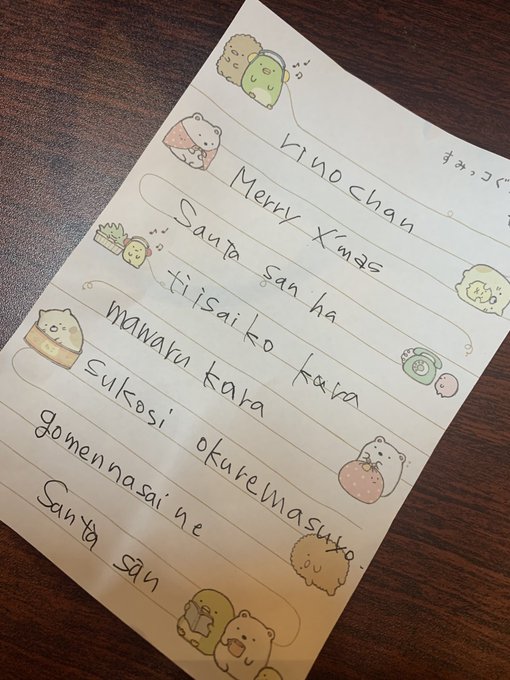 すみっコぐ
rino chan
Merry X'mas
Santa san ha
tiisai ko kara
mawaru kara
sukosi okuremasuyo.
gomennasai ne
Santa san